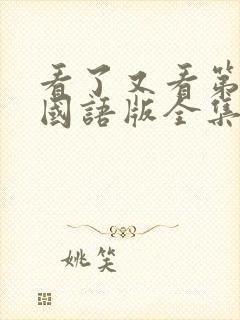 看了又看第
國語版全集
姚笑